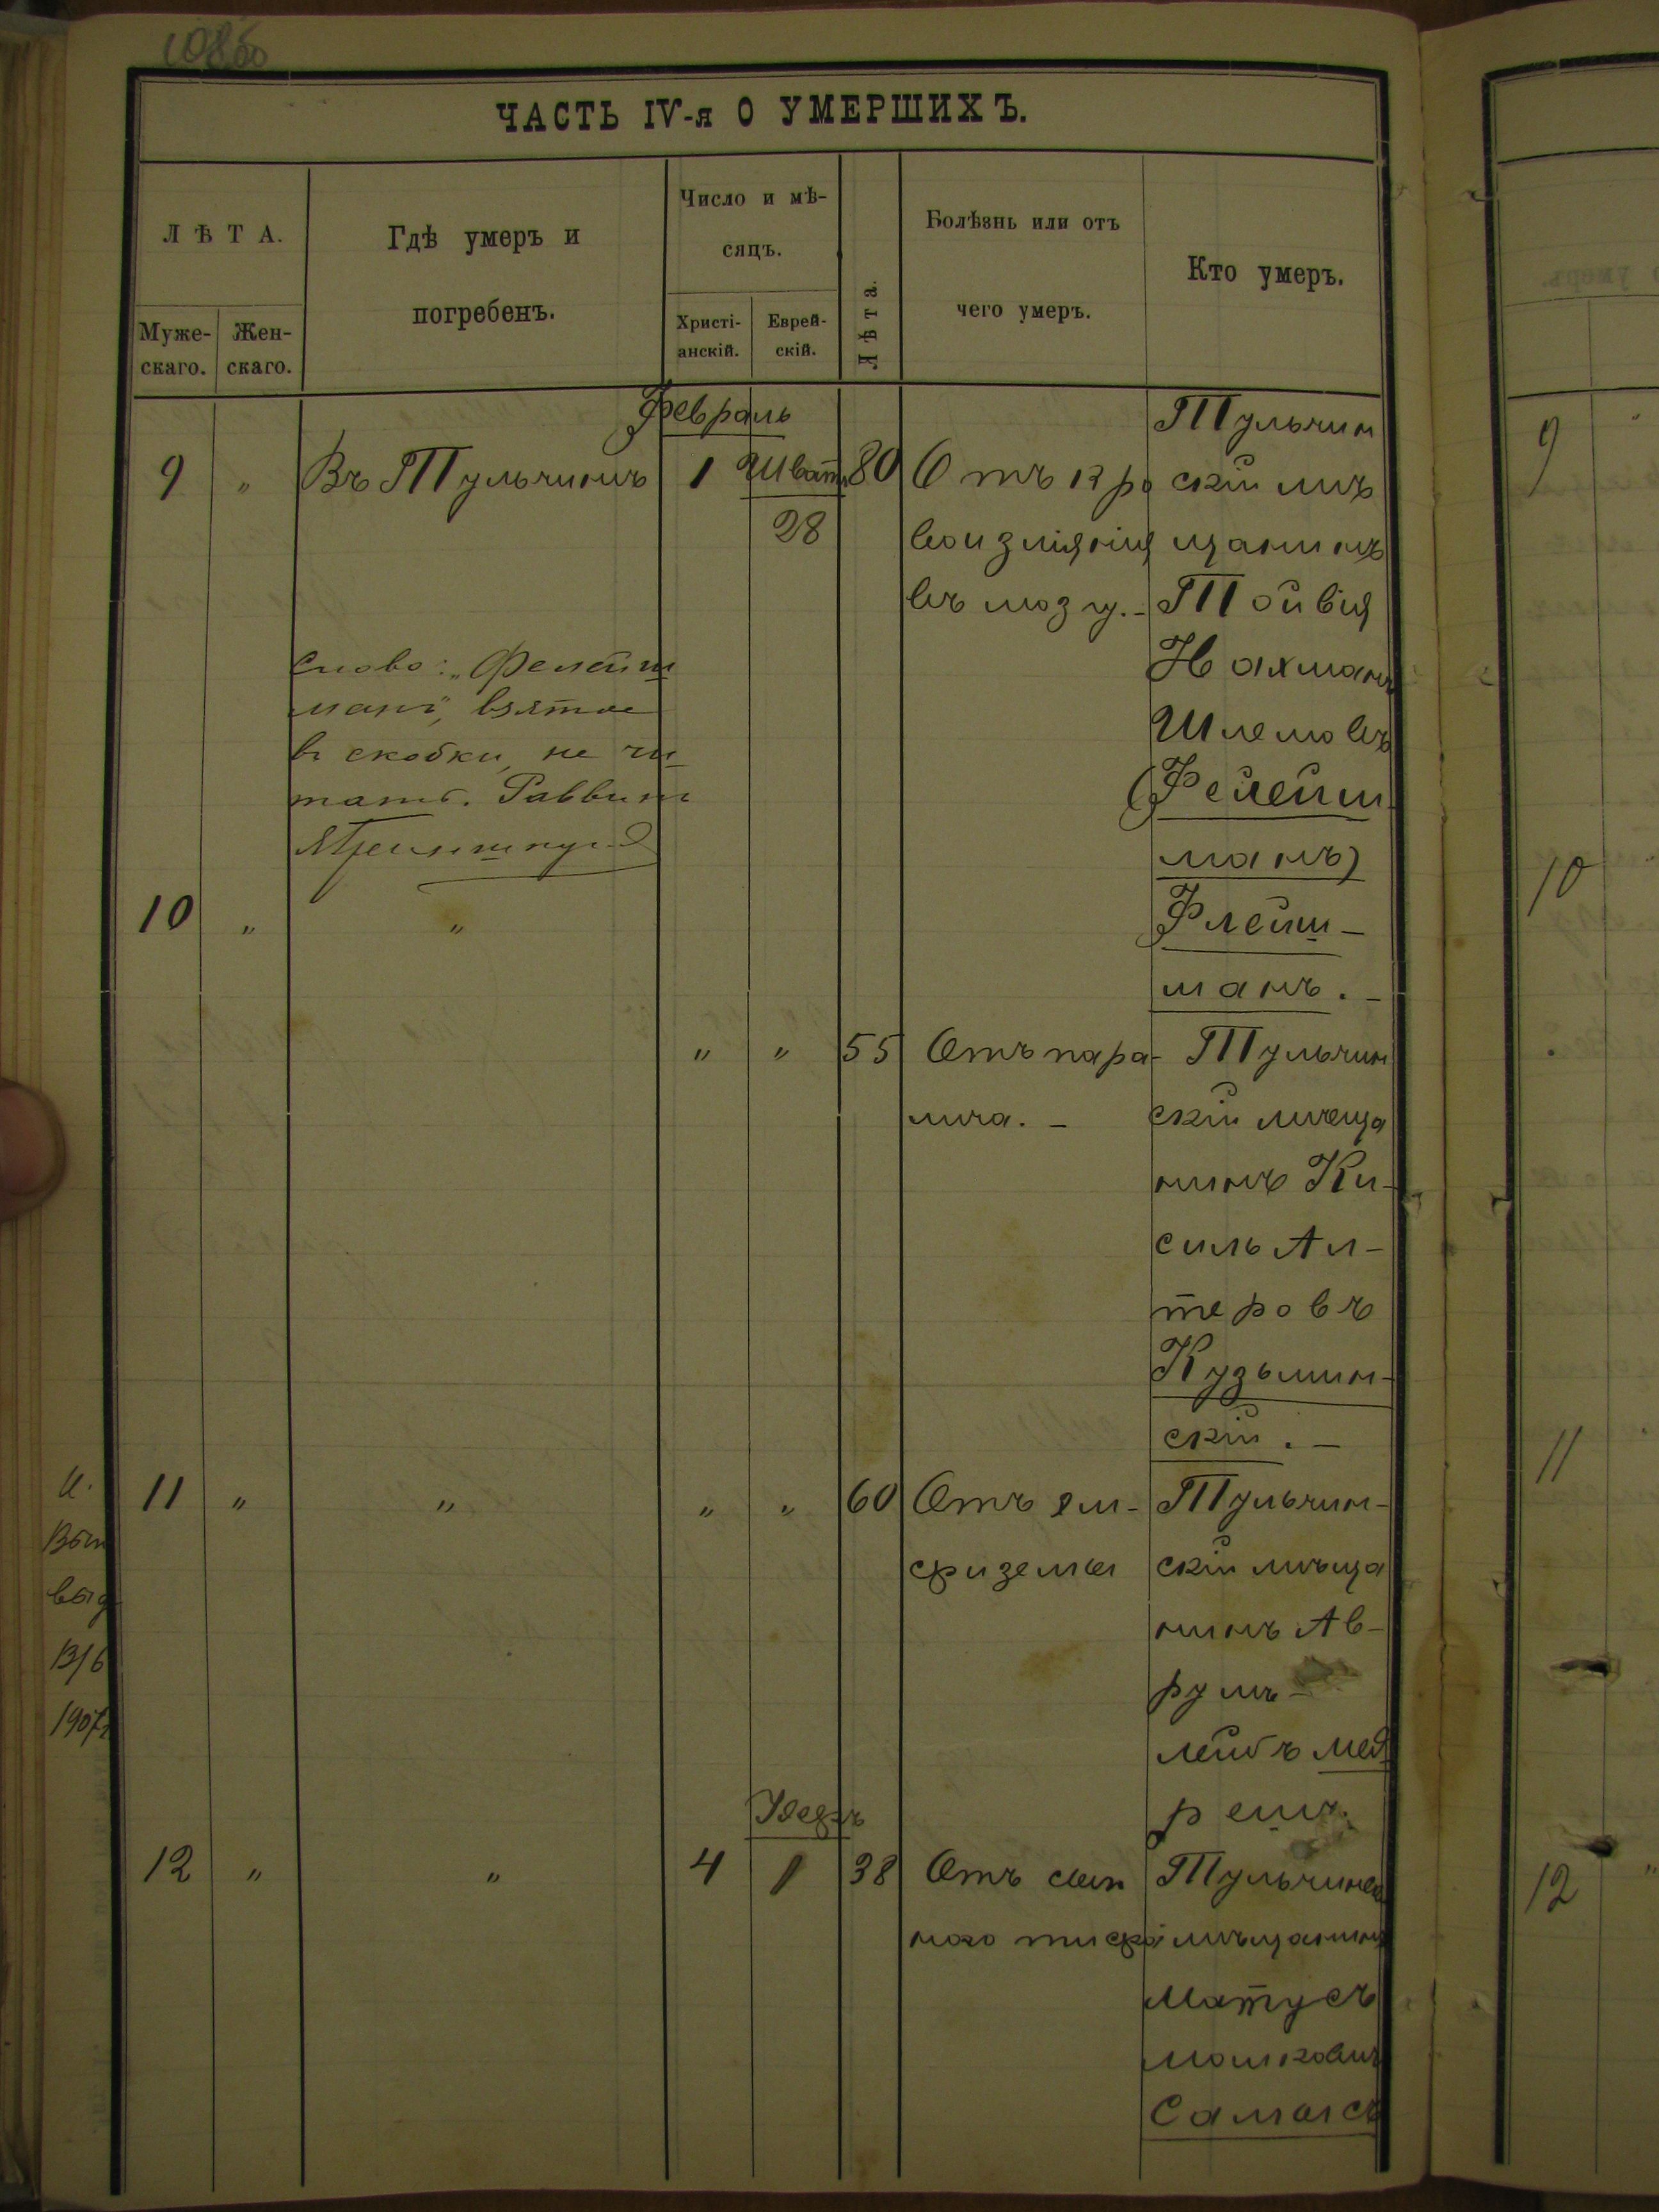 ЧАСТЬ IV-я О УМЕРШИХЪ.
ЛѢТА.
Муже-
скаго.
Жен-
скаго.
Гдѣ умеръ и
погребенъ.
Число и мѣ-
сяцъ.
Христі-
анскій.
Еврей-
скій.
Лѣта.
Болѣзнь или отъ
чего умеръ.
Кто умеръ.
Февраль
9 " Въ Тульчинѣ 1 Шватъ 80 Отъ кро
28
воизліянія
въ мозгу.-
Тульчин
скій мѣ
щанинъ
Тойвія
Нахманъ
Шлемовъ
(Фелейш-
манъ)
Флейш-
манъ.-
Слово: „Фелейш
манъ", взятое
въ скобки, не чи
тать. Раввинъ
10 " " " " 55 Отъ пара-
лича.-
Тульчин
скій мѣща
нинъ Ки-
силь Ал-
теровъ
Кузьмин-
скій.-
11 " " " " 60 Отъ эм-
физемы
Тульчин-
скій мѣща
нинъ Ав-
румъ-
лейбъ Мед
решъ.
13/6
1907г
Адаръ
12 " " 4 1 38 Отъ сып
ного тифа
Тульчинск
мѣщанинъ
Матусъ
Мошковичъ
Самойсъ
9
10
11
12